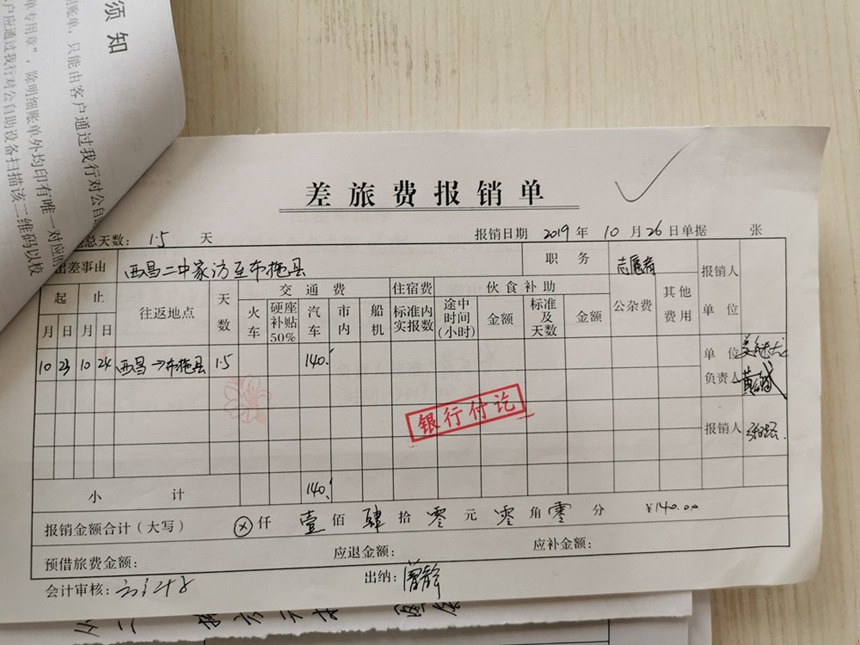 须知
账单,只能由客户通过我行对公自
单专用章”,除明细账单外均印有唯一对应的
户应通过我行对公自助设备扫描该二维码以校
差旅费报销单
总天数: 1.5 天 报销日期 2019 年 10 月 26 日单据 张
出差事由 西昌二中家访至布拖县 职务 志愿者 报销人
起 止 往返地点 天数 交通费 住宿费 伙食补助 公杂费 其他费用 单位
月 日 月 日 火车 硬座补贴50% 汽车 市内 船机 标准内实报数 途中时间(小时) 金额 标准及天数 金额
10 23 10 24 西昌→布拖县 1.5 140. 单位
负责人
银行付讫
报销人
小计 140.
报销金额合计(大写) ⊗仟 壹佰 肆拾 零元 零角 零分 ¥140.00
预借旅费金额: 应退金额: 应补金额:
会计审核: 出纳: